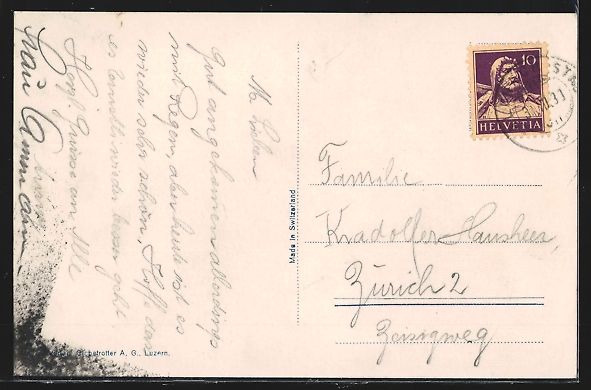 M. Lieben
Gut angekommen allerdings
mit Regen, aber heute ist es
wieder sehr schön, Hofft dass
es wieder besser geht
Herzl. Grüsse an Alle
Frau
10
HELVETIA
31
Made in Switzerland
Familie
Kradolfer-Hausheer,
Zürich 2
Zeisigweg
Globetrotter A. G., Luzern.